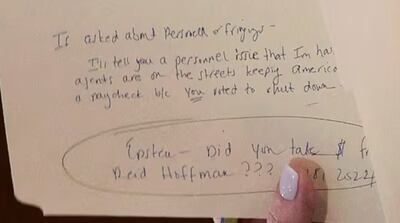 If asked about Personnel or firings -
I'll tell you a personnel issue that I'm ha
agents are on the streets keepig America
a paycheck b/c you voted to shut down.
Epstein - Did you take $ fr
Reid Hoffman ??? 2022